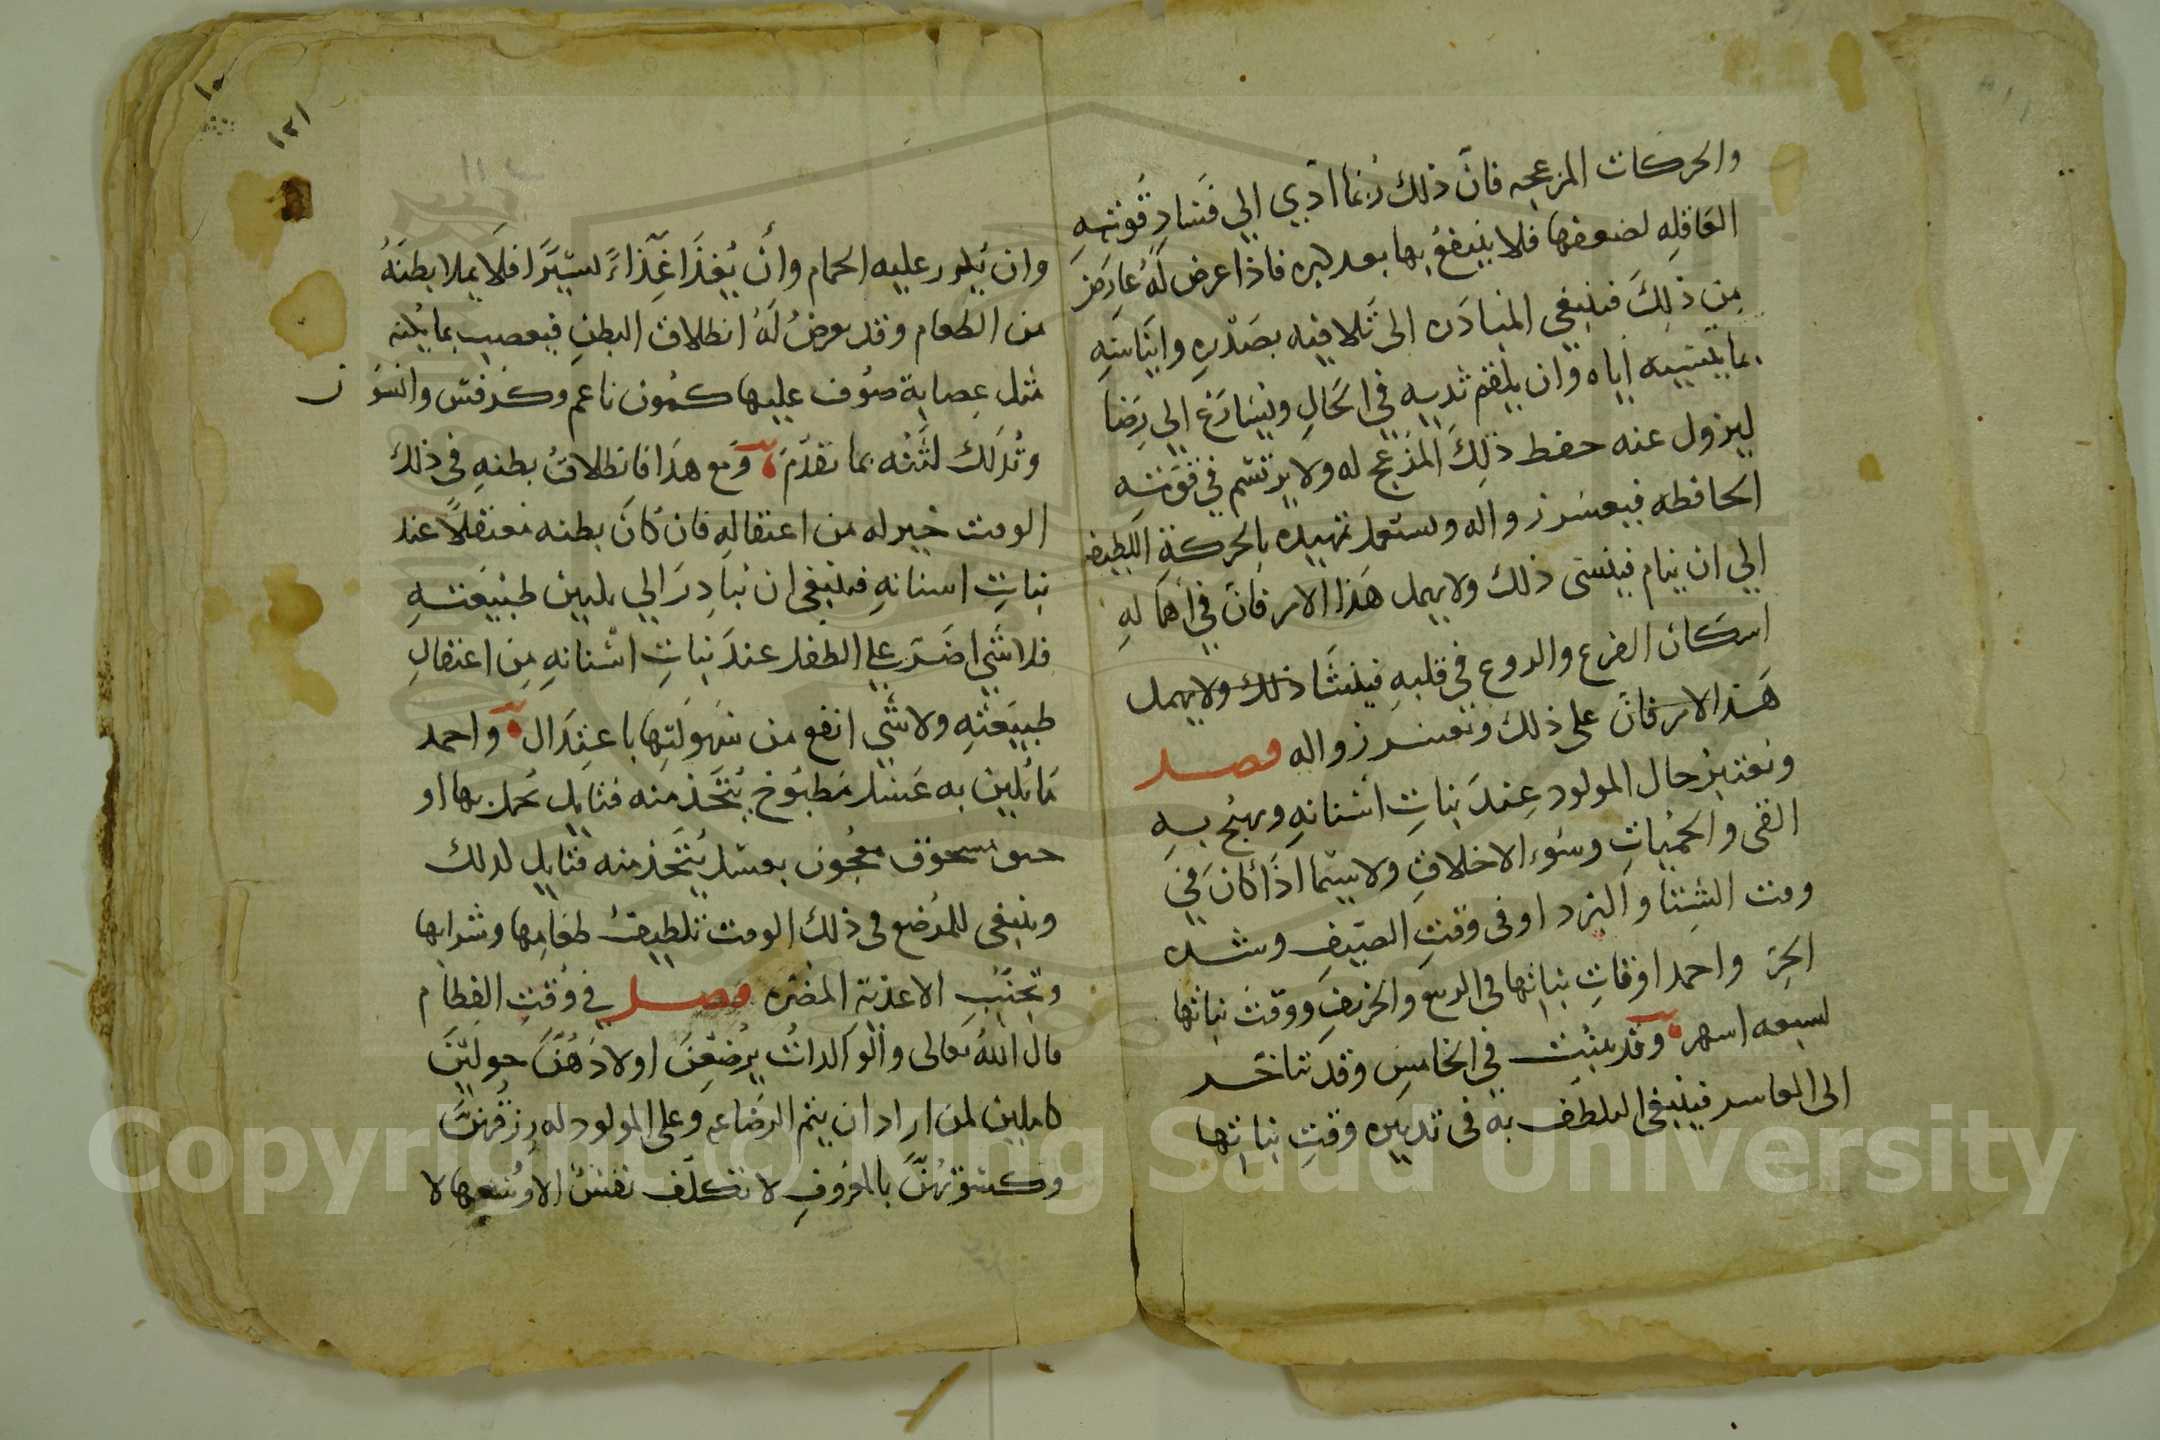 والحركات المزعجه فانّ ذلك ربما ادّي الي فساد قوته
العاقله لضعفها فلا ينتفع بها بعد كبره فاذا عرض له عارض
من ذلك فينبغي المبادره الى تلافيه بضدّه وايناسه
بما ينسيه اياه وان يلقم ثديه في الحال ويسارع الي رضا
ليزول عنه حفظ ذلك المزعج له ولا يرتسم في قوته
الحافظه فيعسر زواله ويستعمل تمهيده بالحركة اللطيفه
الي ان ينام فينسى ذلك ولا يهمل هذا الامر فانّ في اهماله
اسكان الفزع والروع في قلبه فينشا ذلك ولا يهمل
هذا الامر فانّ على ذلك وتعسر زواله فصل
وتعتبر حال المولود عند نبات اسنانه ويهيج به
القى والحميات وسوء الاخلاق ولا سيما اذا كان في
وقت الشتا والبرد او فى وقت الصيف وشده
الحرّ واحمد اوقات نباتها فى الربيع والخريف ووقت نباتها
لسبعه اشهر وقد ينبت في الخامس وقد تتاخر
الى العاشر فينبغي التلطف به فى تدبيره وقت نباتها
١٠
١٢١
وان يكرر عليه الحمام وأن يُغذا غذاءً يسيرا فلا يملا بطنه
من الطعام وقد يعرض له انطلاق البطن فيعصب بما يكنه
مثل عصابة صوف عليها كمون ناعم وكرفس وانسون
وتدلك لثته بما تقدّم ومع هذا فانطلاق بطنه فى ذلك
الوقت خير له من اعتقاله فان كان بطنه معتقلاً عند
نبات اسنانه فينبغى ان يبادر الي تليين طبيعته
فلا شي اضرّ علي الطفل عند نبات اسنانه من اعتقال
طبيعته ولا شي انفع من سهولتها باعتدال واحمد
ما يلين به عسل مطبوخ يتخذ منه فتايل تحمل بها او
حبق مسحوق معجون بعسل يتخذ منه فتايل لذلك
وينبغى للمرضع فى ذلك الوقت تلطيف طعامها وشرابها
وتجنب الاغذية المضره فصل في وقت الفطام
قال الله تعالى والوالداتُ يرضعن اولادهنّ حولين
كاملين لمن اراد ان يتم الرضاعه وعلى المولود له رزقهنّ
وكسوتهنّ بالمعروف لا تكلف نفسٌ الا وسعها لا
Copyright © King Saud University